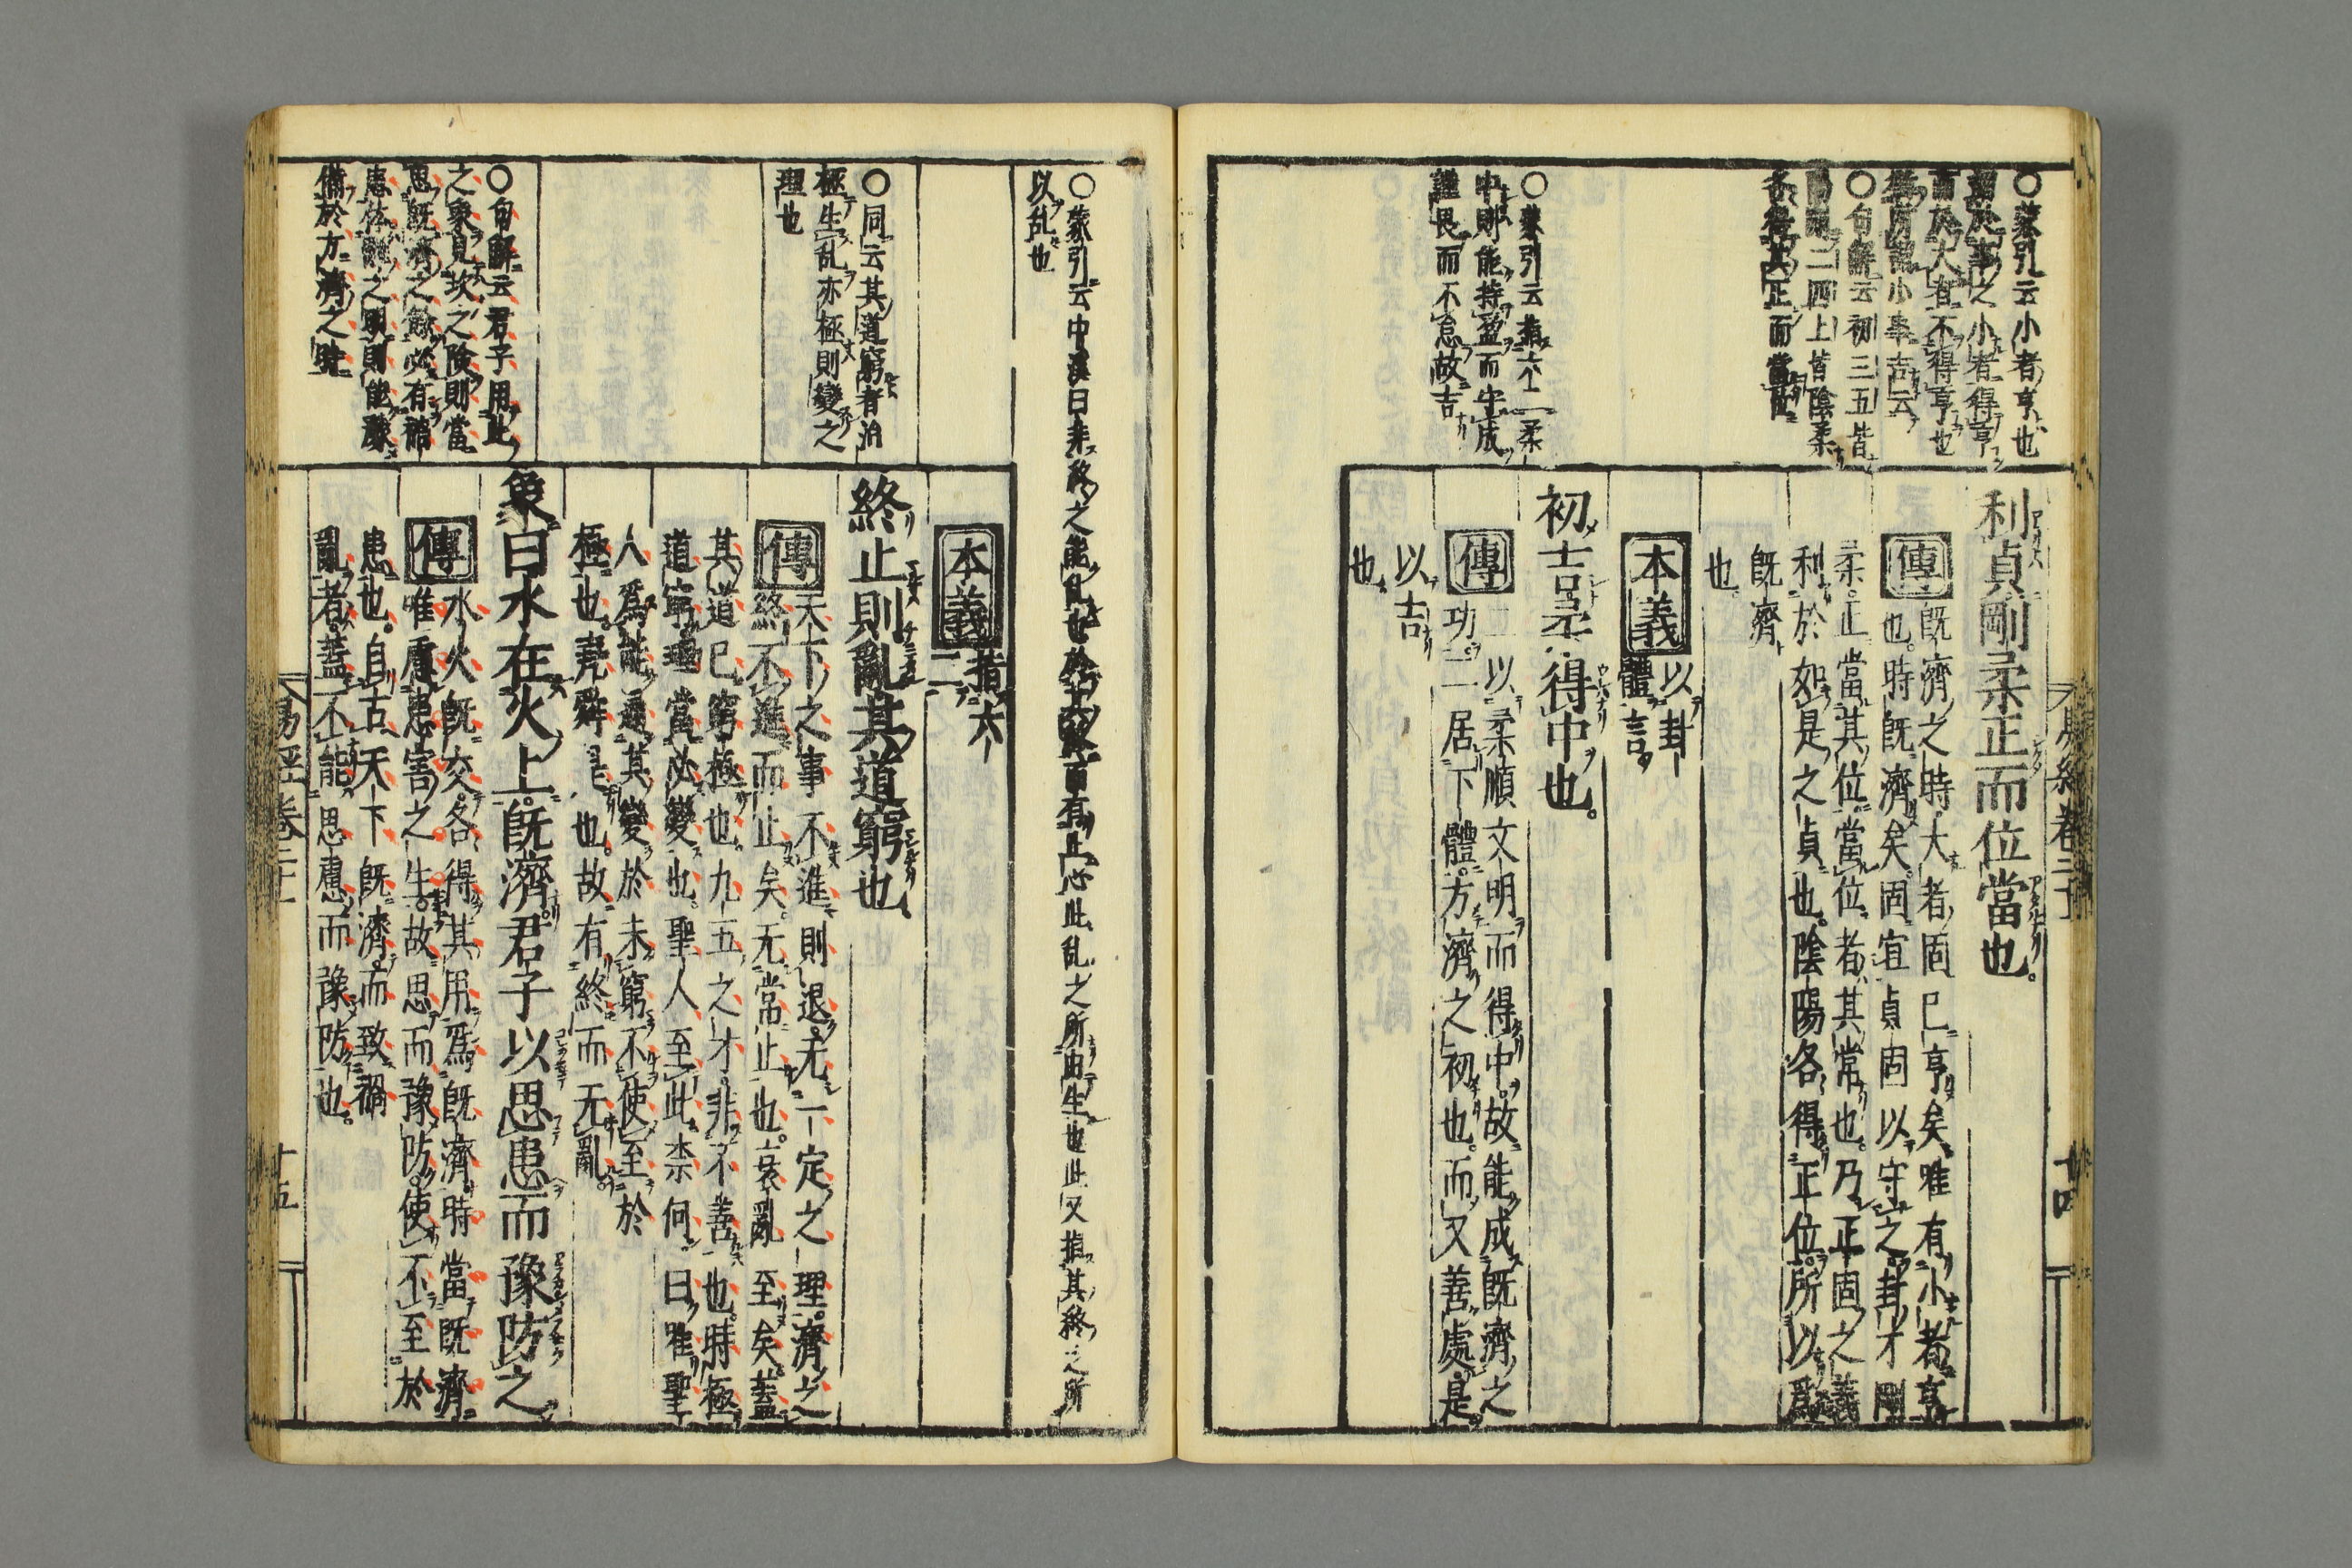 易經卷二十
十四
○蒙引云小者亨也
謂於事之小者得亨
而於大者不得亨也
○句解云初三五皆
陽爻二四上皆陰柔
各得其正而當位
利貞剛柔正而位當也。
傳
既濟之時。大者固已亨矣。唯有小者亨
也。時既濟矣。固宜貞固以守之。卦才剛
柔。正當其位。當位者其常也。乃正固之義
利於如是之貞也。陰陽各得正位。所以爲
既濟
也。
本義
以卦
體言
○蒙引云指六二柔
中則能持盈而守成
謹畏而不怠故吉
初吉柔得中也。
傳
二以柔順文明而得中。故能成既濟之
功。二居下體。方濟之初也。而又善處。是
以吉
也。
以乱也
本義
指六
二
○同云其道窮者治
極生乱亦極則變之
理也
終止則亂其道窮也。
傳
天下之事。不進則退。无一定之理。濟之
終不進而止矣。无常止也。衰亂至矣。蓋
其道已窮極也。九五之才。非不善也。時極
道窮。理當必變也。聖人至此柰何。曰唯聖
人爲能通其變於未窮。不使至於
極也。堯舜是也。故有終而无亂。
○句解云君子用此
之象見坎之險則當
思既濟之餘必有
患体離之明則能豫
備於方濟之時
象曰水在火上。既濟。君子以思患而豫防之
傳
水火既交。各得其用。爲既濟。時當既濟。
唯慮患害之生。故思而豫防。使不至於
患也。自古天下既濟。而致禍
亂者。蓋不能思慮而豫防也。
易經卷二十
十五